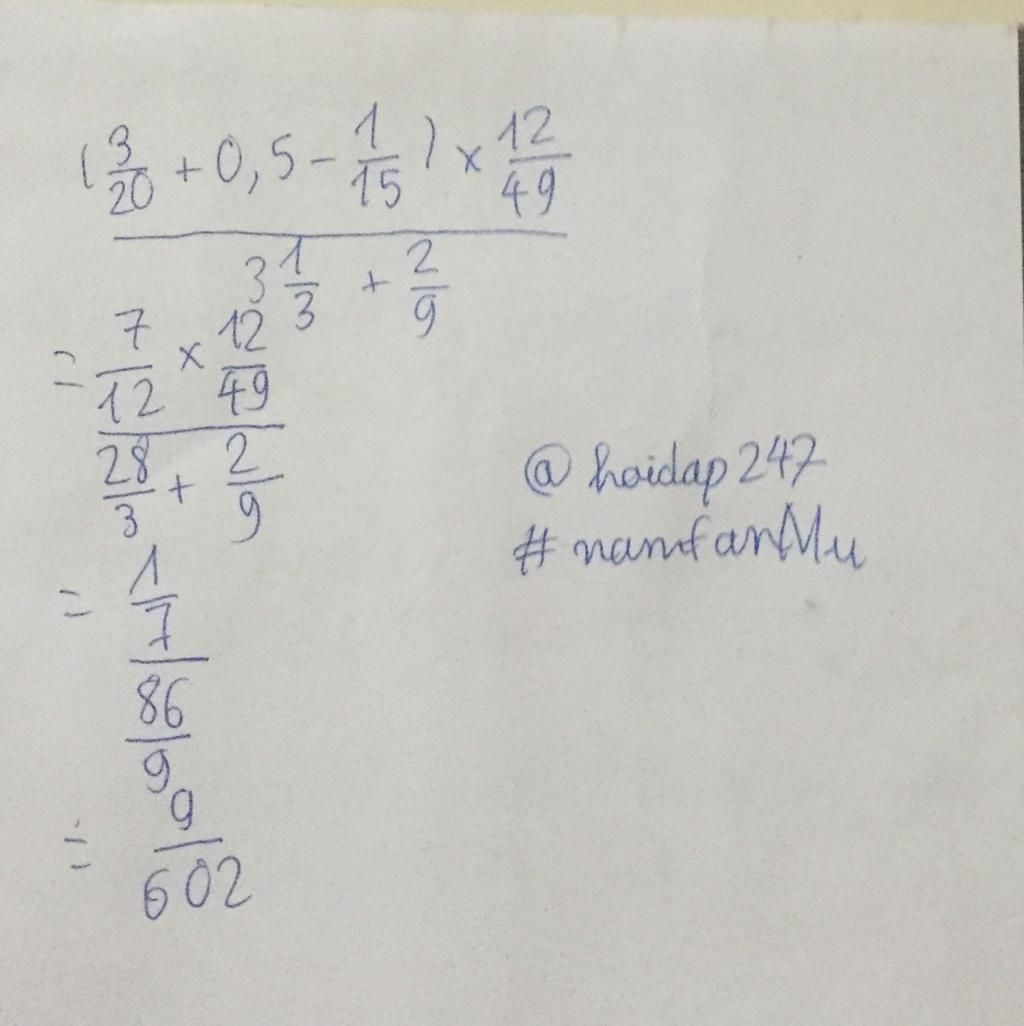 (3/20 + 0,5 - 1/15) x 12/49
3 1/3 + 2/9
= 7/12 x 12/49
28/3 + 2/9
@hoidap247
#namfanMu
= 1/7
86/9
= 9/602